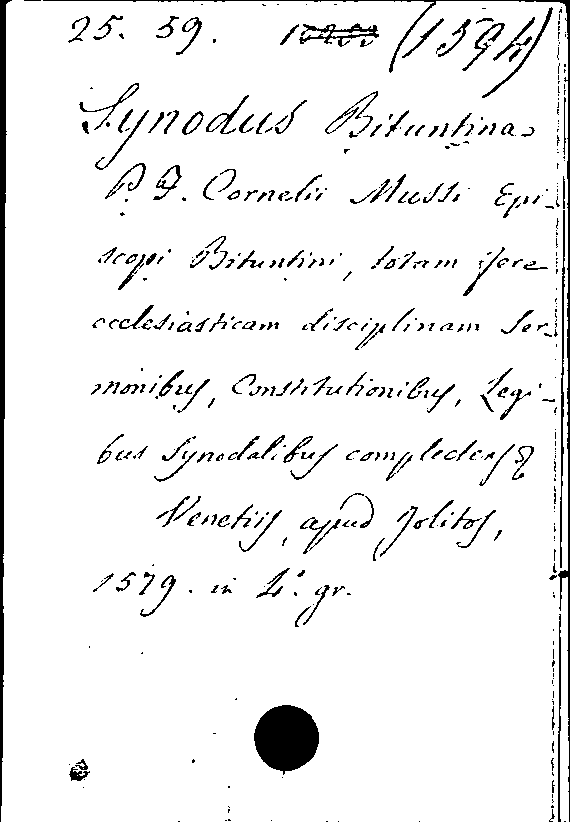 25. 59. (1594)
Synodus Bituntina
P. F. Cornelii Mussi Epi-
scopi Bituntini, totam fere
ecclesiasticam disciplinam Ser-
monibus, Constitutionibus, Legi-
bus Synodalibus complectens
Venetiis, apud Jolitos,
1579. in 4°. gr.